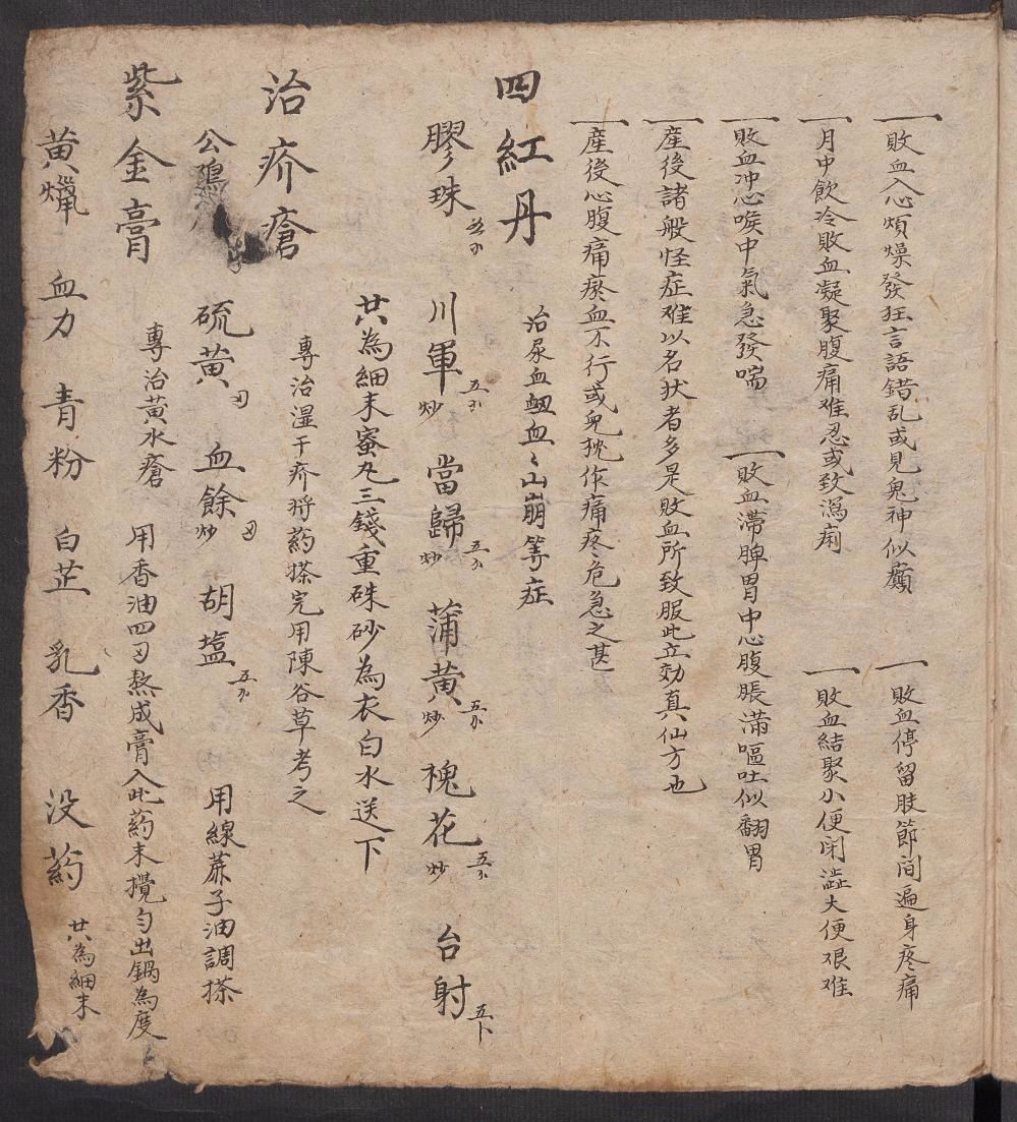 一敗血入心煩燥發狂言語錯乱或見鬼神似癲 一敗血停留肢節间遍身疼痛
一月中飲冷敗血凝聚腹痛难忍或致瀉痢 一敗血結聚小便闭澁大便艰难
一敗血冲心喉中氣急發喘 一敗血滞脾胃中心腹脹滿嘔吐似翻胃
一産後諸般怪症难以名状者多是敗血所致服此立効真仙方也
一産後心腹痛瘀血不行或兒枕作痛疼危急之甚
四紅丹 治尿血衂血〻山崩等症
膠珠 川軍炒 當歸炒 蒲黄炒 槐花炒 台射
共為細末蜜丸三錢重硃砂為衣白水送下
治疥瘡 專治湿干疥将药搽完用陳谷草考之
公 硫黄 血餘炒 胡塩 用線蔴子油調搽
紫金膏 專治黄水瘡 用香油四刄熬成膏入此药末攪匀出鍋為度
黄蠟 血力 青粉 白芷 乳香 没药 共為細末